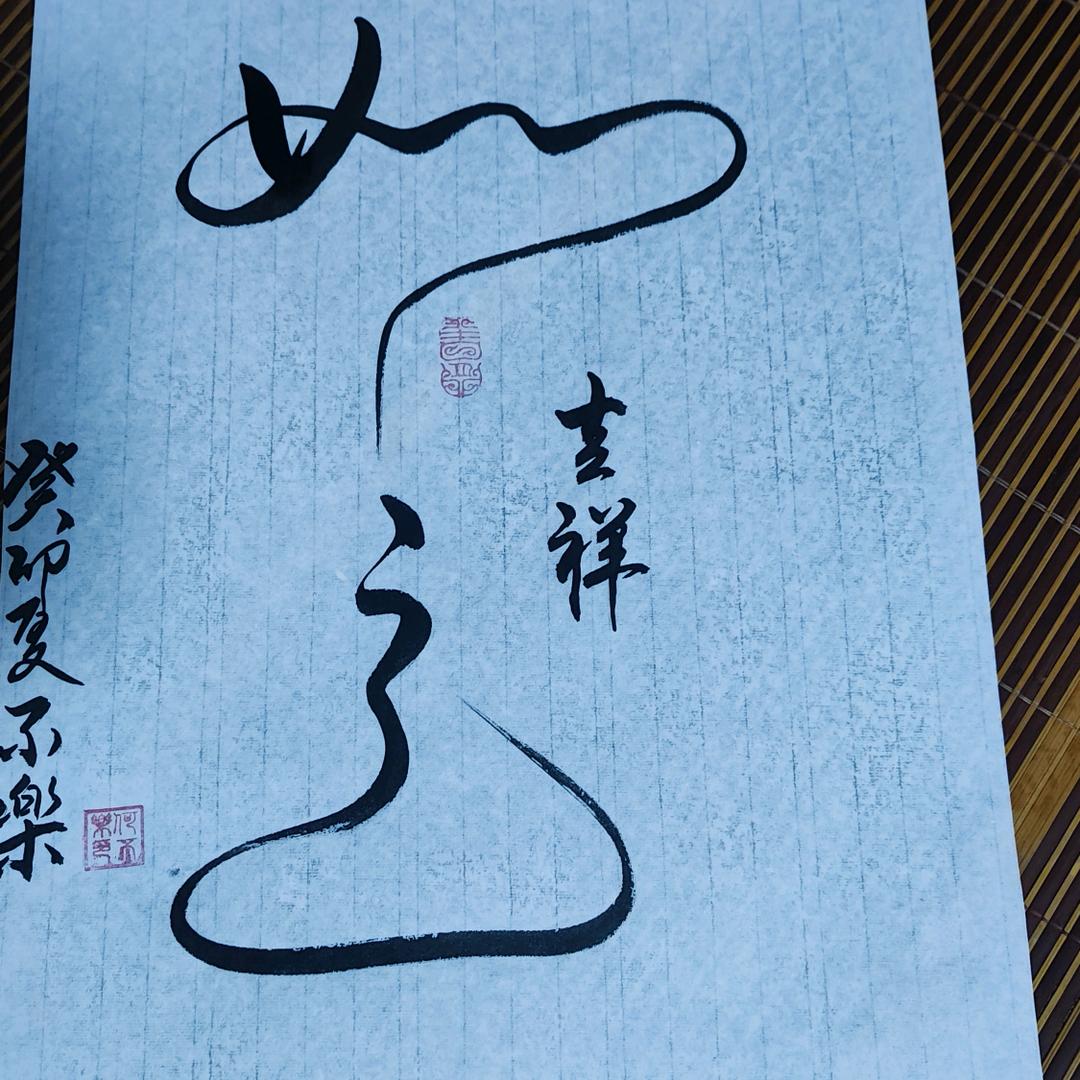 吉祥
如意
癸卯夏不樂
何不